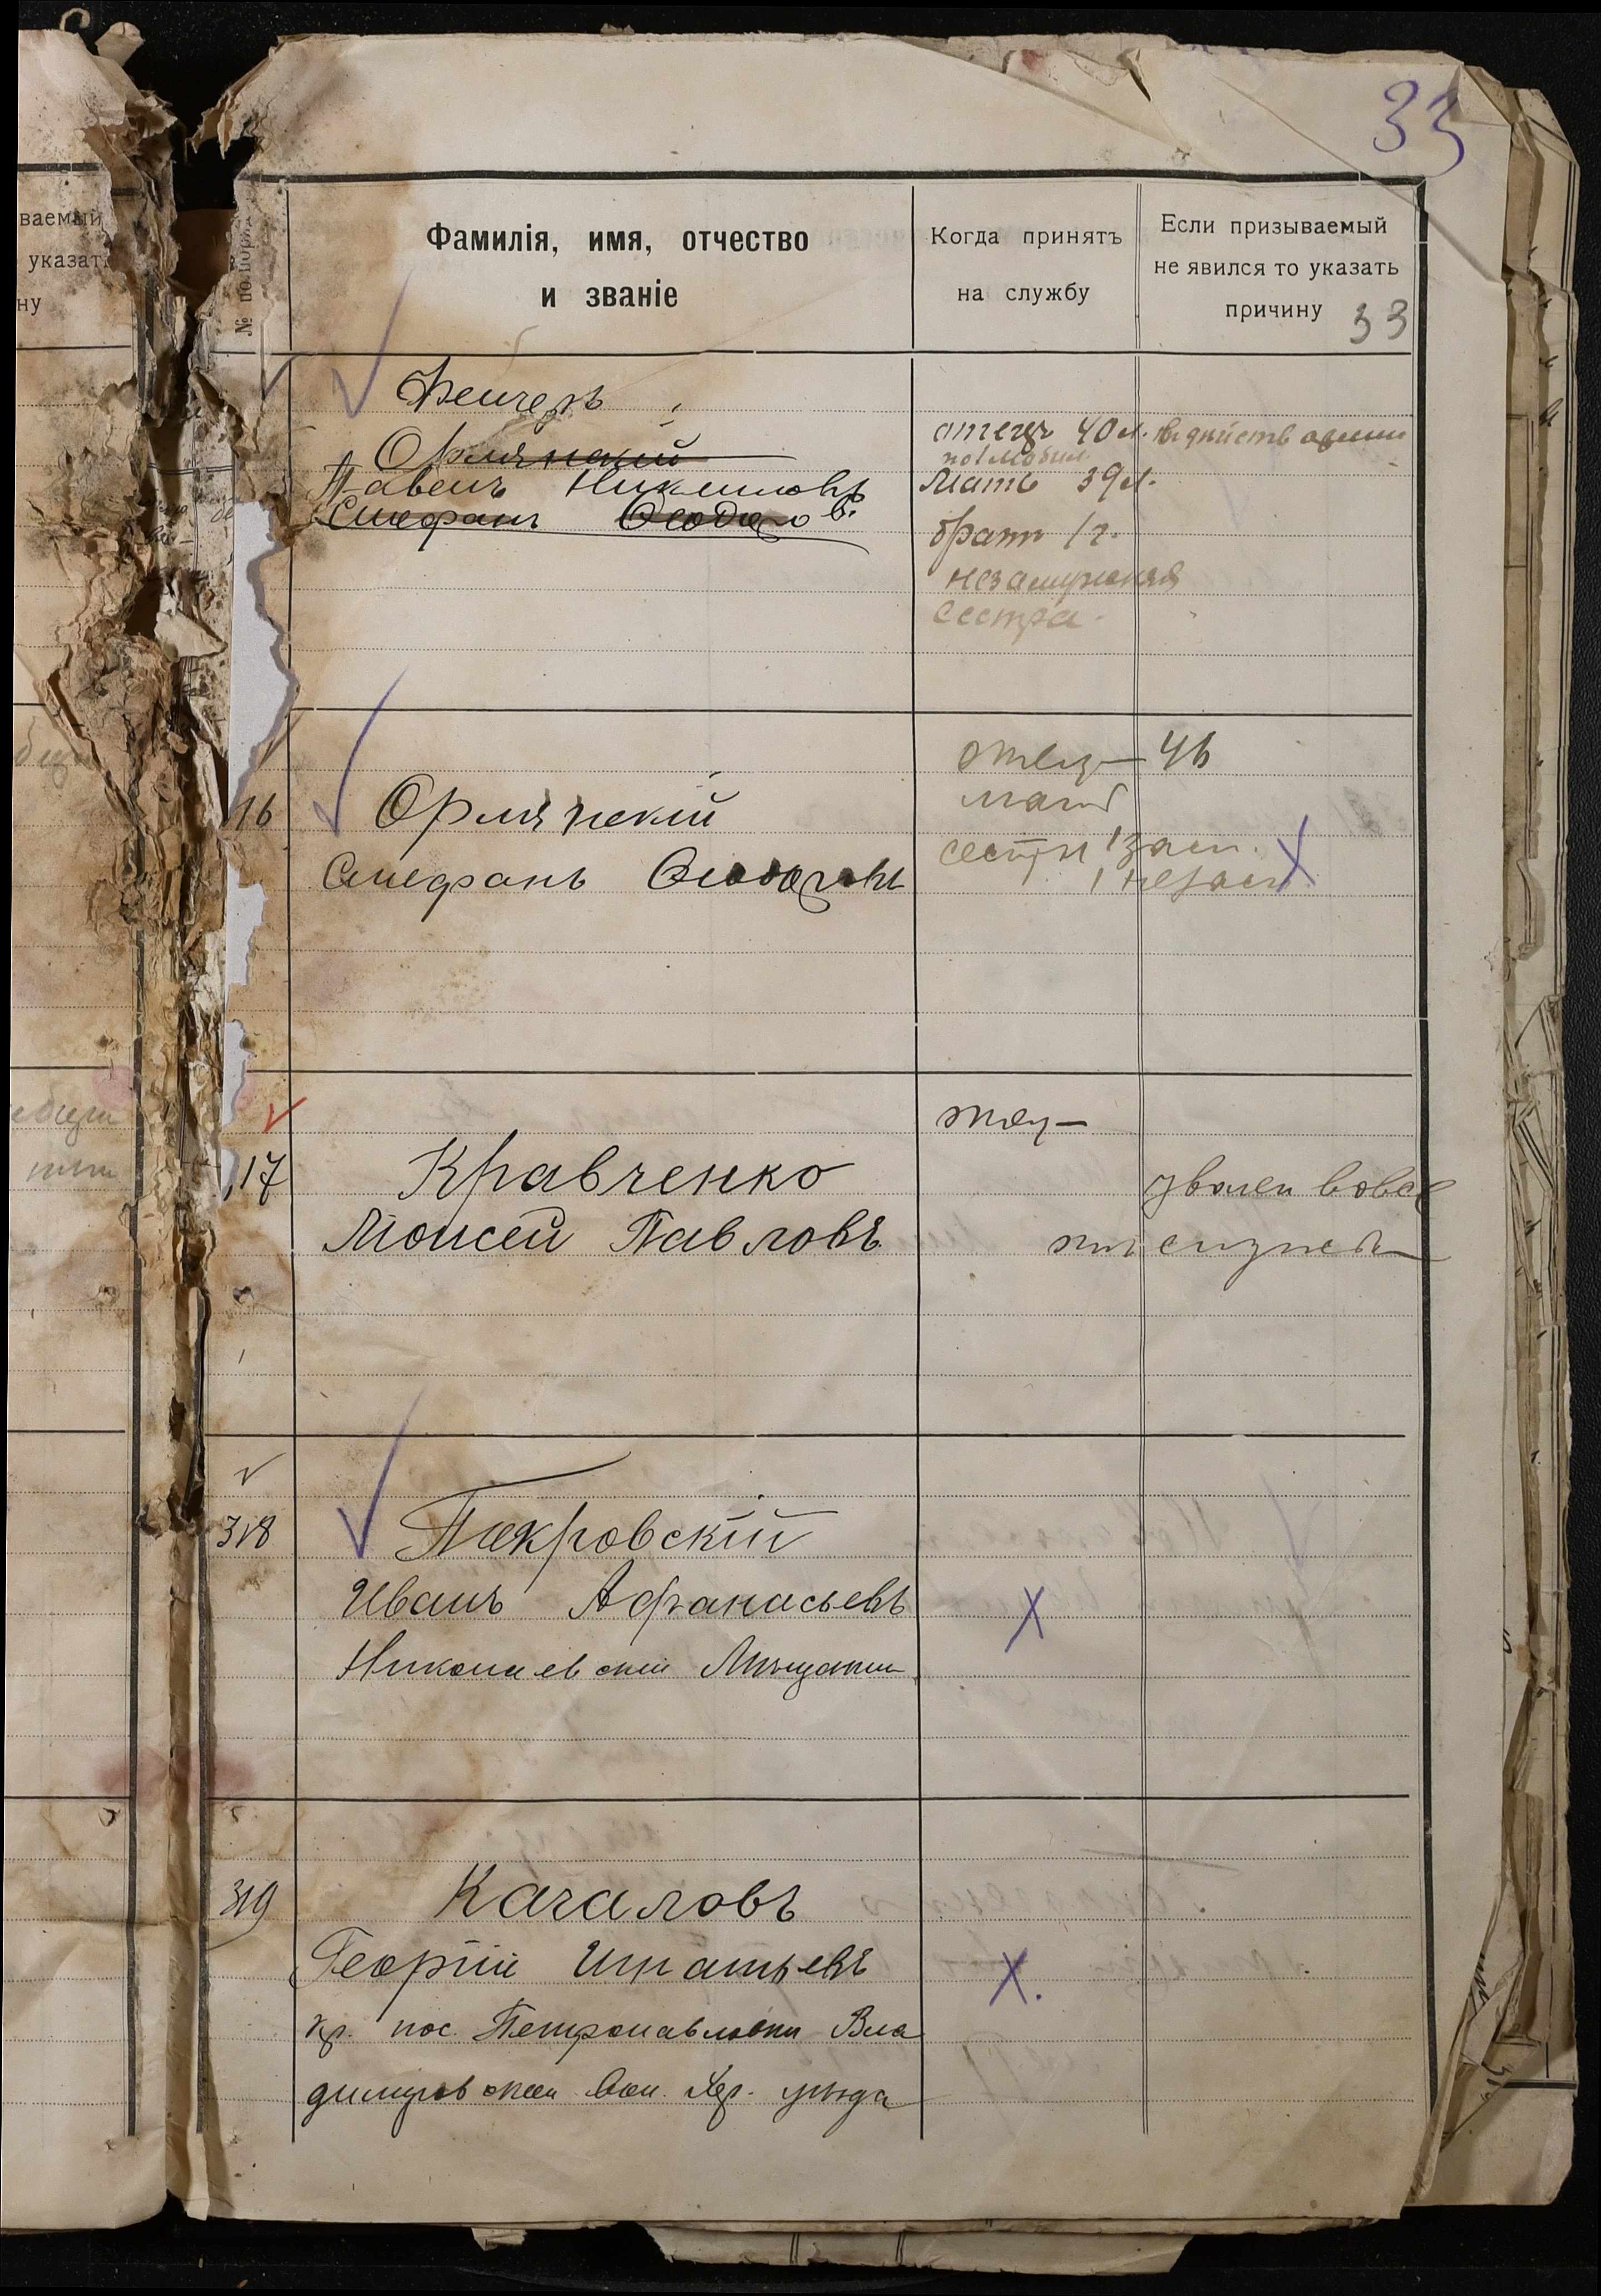 33
ваемый
указать
ну
№ по поряд.
Фамилія, имя, отчество
и званіе
Когда принятъ
на службу
Если призываемый
не явился то указать
причину
33
Орлянскій
Павелъ
Стефанъ Ѳеодоров.
отецъ 40 л.
по 1 мобил
Мать 39 л.
братъ 1 г.
незамужняя
сестра.
отец — 46
мать
сестры 1 зам.
1 незам.
16
Орлянскій
Стефанъ Ѳеодоровъ
17
Кравченко
Моисей Павловъ
уволен вовсе
от службы
318
Покровскій
Иванъ Афанасьевъ
Николаевскій Мѣщанин
319
Качаловъ
Георгій Игнатьевъ
кр. пос. Петропавловки Вла
димировской вол. Хер. уѣзда